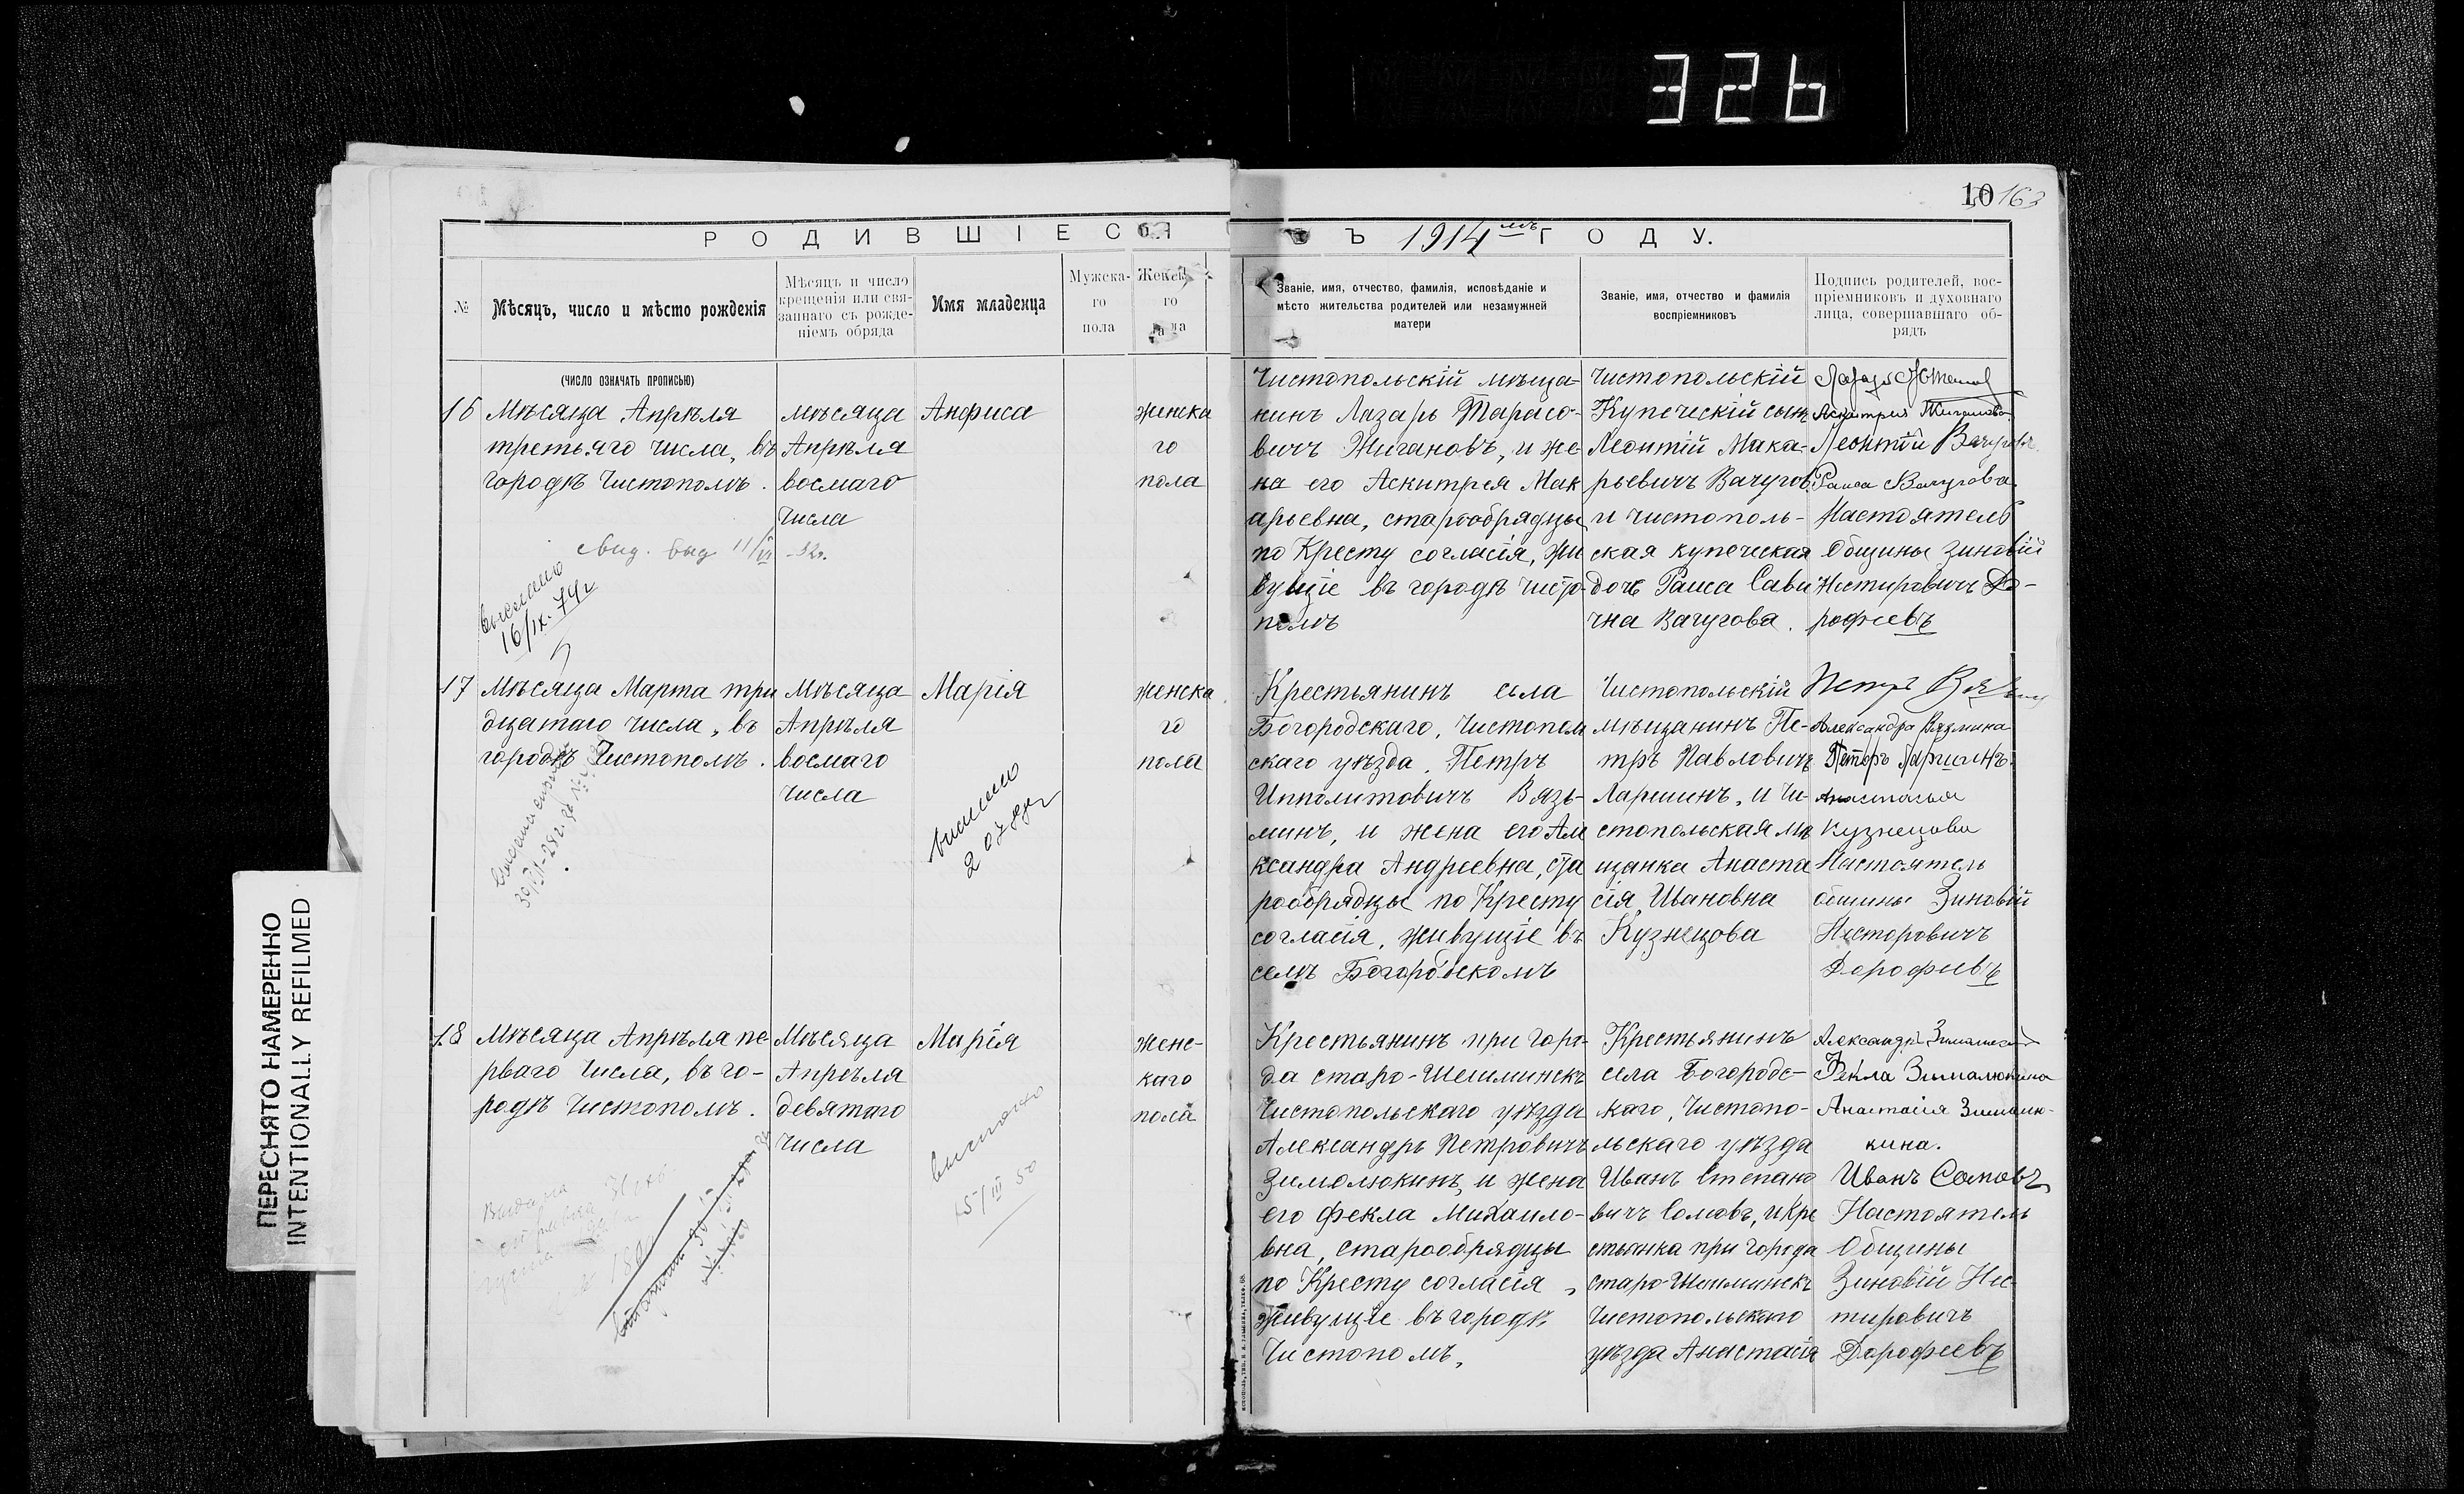 326
10 163
РОДИВШІЕСЯ ВЪ 1914мъ ГОДУ.
№
Мѣсяцъ, число и мѣсто рожденія
Мѣсяцъ и число
крещенія или свя-
заннаго съ рожде-
ніемъ обряда
Имя младенца
Мужска-
го
пола
Женска-
го
пола
Званіе, имя, отчество, фамилія, исповѣданіе и
мѣсто жительства родителей или незамужней
матери
Званіе, имя, отчество и фамилія
воспріемниковъ
Подпись родителей, вос-
пріемниковъ и духовнаго
лица, совершавшаго об-
рядъ
(ЧИСЛО ОЗНАЧАТЬ ПРОПИСЬЮ)
16
Мѣсяца Апрѣля
третьяго числа, въ
городѣ Чистополѣ.
мѣсяца
Апрѣля
восмаго
числа
Анфиса
женска
го
пола
Чистопольскій мѣща-
нинъ Лазарь Тарасо-
вичъ Жигановъ, и же
на его Аскитрея Мак
арьевна, старообрядцы
по Кресту согласія, жи
вущіе въ городѣ Чисто-
полѣ
Чистопольскій
Купеческій сынъ
Леонтій Мака-
рьевичъ Вачугов
и чистополь-
ская купеческая
дочь Раиса Сави
чна Вачугова.
Леонтій Вачуговъ
Раиса Вачугова.
Настоятель
Общины Зиновій
Нестировичъ До-
рофеевъ
свид. выд 11/VI -32г.
выслано
16/IX-74г
17
Мѣсяца Марта три
дцатаго числа, въ
городѣ Чистополѣ.
Мѣсяца
Апрѣля
восмаго
числа
Марія
женска
го
пола
Крестьянинъ села
Богородскаго, Чистопол
скаго уѣзда. Петръ
Ипполитовичъ Вязь-
минъ, и жена его Але
ксандра Андреевна, ста
рообрядцы по Кресту
согласія, живущіе въ
селѣ Богородскомъ
Чистопольскій
мѣщанинъ Пе-
тръ Павловичъ
Ларшинъ, и Чи-
стопольская мѣ
щанка Анаста
сія Ивановна
Кузнецова
Петръ
Александра Вязмина
Петоръ Ларшинъ.
Анастасья
Кузнецова
Настоятель
общины Зиновій
Несторовичъ
Дорофиевъ
18
Мѣсяца Апрѣля пе-
рваго числа, въ го-
родѣ Чистополѣ.
Мѣсяца
Апрѣля
девятаго
числа
Марія
женс-
каго
пола
Крестьянинъ при горо-
да старо-Шешминскъ
Чистопольскаго уѣзда
Александръ Петровичъ
Зимолюкинъ, и жена
его Фекла Михаило-
вна, старообрядцы
по Кресту согласія,
живущіе въ городѣ
Чистополѣ,
Крестьянинъ
села Богородс-
каго, Чистопо-
льскаго уѣзда
Иванъ Степано
вичъ Сомовъ, и Кре
стьянка при города
старо-Шешминскъ
Чистопольскаго
уѣзда Анастасія
Фекла Зималюкина
Анастасія Зималю-
кина.
Иванъ Сомовъ
Настоятель
Общины
Зиновій Нес-
тировичъ
Дорофеевъ
выслано
15/IV 50
ПЕРЕСНЯТО НАМЕРЕННО
INTENTIONALLY REFILMED